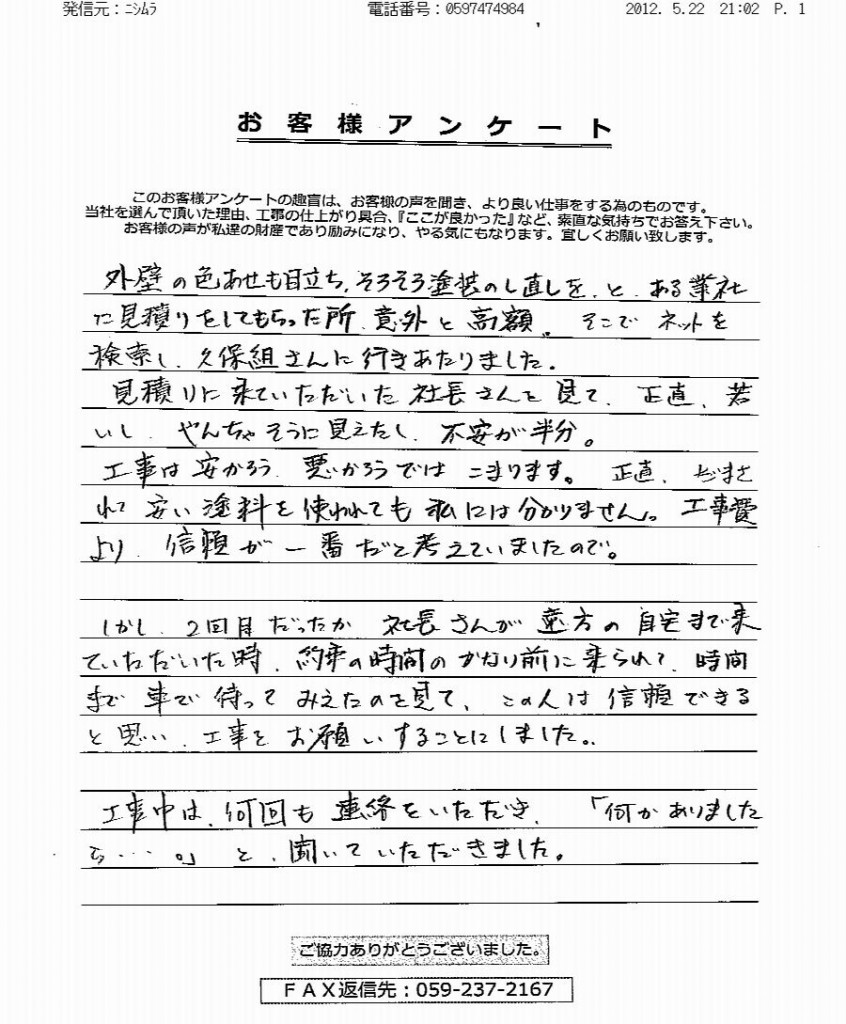 発信元：ﾆｼﾑﾗ 電話番号：0597474984 2012. 5.22 21:02 P. 1
お客様アンケート
このお客様アンケートの趣旨は、お客様の声を聞き、より良い仕事をする為のものです。
当社を選んで頂いた理由、工事の仕上がり具合、『ここが良かった』など、素直な気持ちでお答え下さい。
お客様の声が私達の財産であり励みになり、やる気にもなります。宜しくお願い致します。
外壁の色あせも目立ち、そろそろ塗装のし直しを、と、ある業社
に見積りをしてもらった所、意外と高額。そこでネットを
検索し、久保組さんに行きあたりました。
見積りに来ていただいた社長さんを見て、正直、若
いし、やんちゃそうに見えたし、不安が半分。
工事は安かろう、悪かろうではこまります。正直、だまさ
れて安い塗料を使われても私には分かりません。工事費
より、信頼が一番だと考えていましたので。
しかし、2回目だったか社長さんが遠方の自宅まで来
ていただいた時、約束の時間のかなり前に来られて、時間
まで車で待ってみえたのを見て、この人は信頼できる
と思い、工事をお願いすることにしました。
工事中は、何回も連絡をいただき、「何かありました
ら…。」と、聞いていただきました。
ご協力ありがとうございました。
ＦＡＸ返信先：059-237-2167